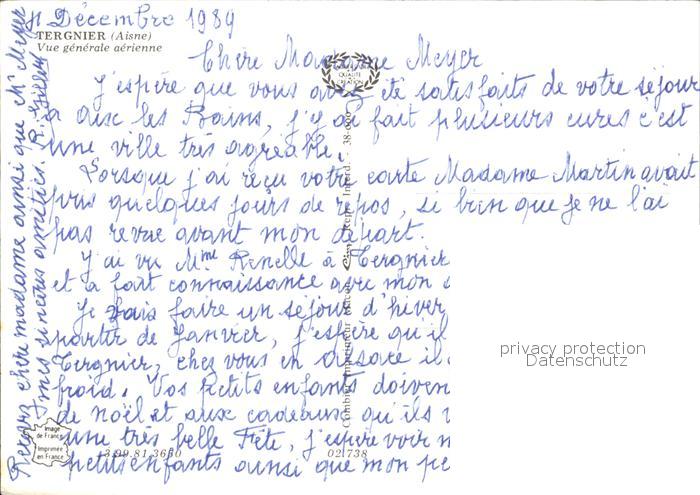 11 Décembre 1989
TERGNIER (Aisne)
Vue générale aérienne
Chère Madame Meyer
J'espère que vous avez été satisfaits de votre séjour
Aix les Bains, j'y ai fait plusieurs cures c'est
une ville très agréable.
Lorsque j'ai reçu votre carte Madame Martin avait
pris quelques jours de repos, si bien que je ne l'ai
pas revue avant mon départ.
J'ai vu Mme Renelle à Tergnier
et a fait connaissance avec mon
Je vais faire un séjour d'hiver
partir de Janvier, j'espère qu'il
Tergnier, chez vous en Alsace il
froid. Vos petits enfants doiven
de noël et aux cadeaux qu'ils
une très belle Fête, j'espère voir
petits enfants ainsi que mon pe
Recevez chère madame ainsi que Mr Meyer
mes sincères amitiés.
QUALITE
CREATION
Image
de France
Imprimée
en France
3.99.81.3630
02 738
privacy protection
Datenschutz